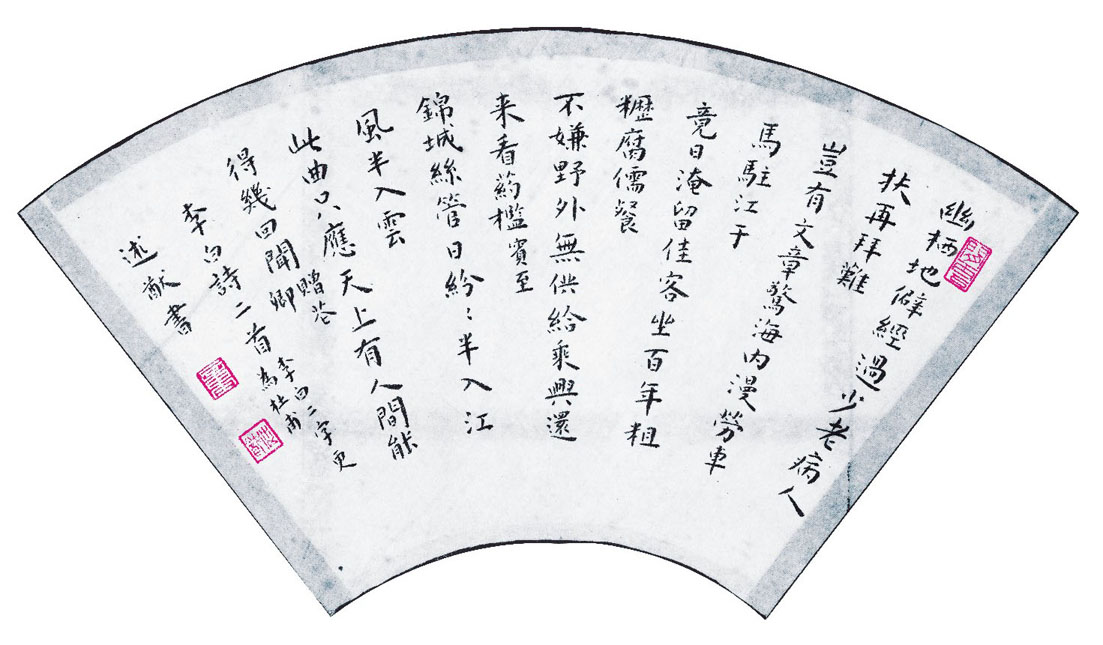 幽栖地僻經過少老病人
扶再拜難
豈有文章驚海內漫勞車
馬駐江干
竟日淹留佳客坐百年粗
糲腐儒餐
不嫌野外無供給乘興還
来看葯檻賓至
錦城絲管日紛〻半入江
風半入雲
此曲只應天上有人間能
得幾回聞
贈花
卿
李白詩二首
李白二字更
為杜甫
述猷書